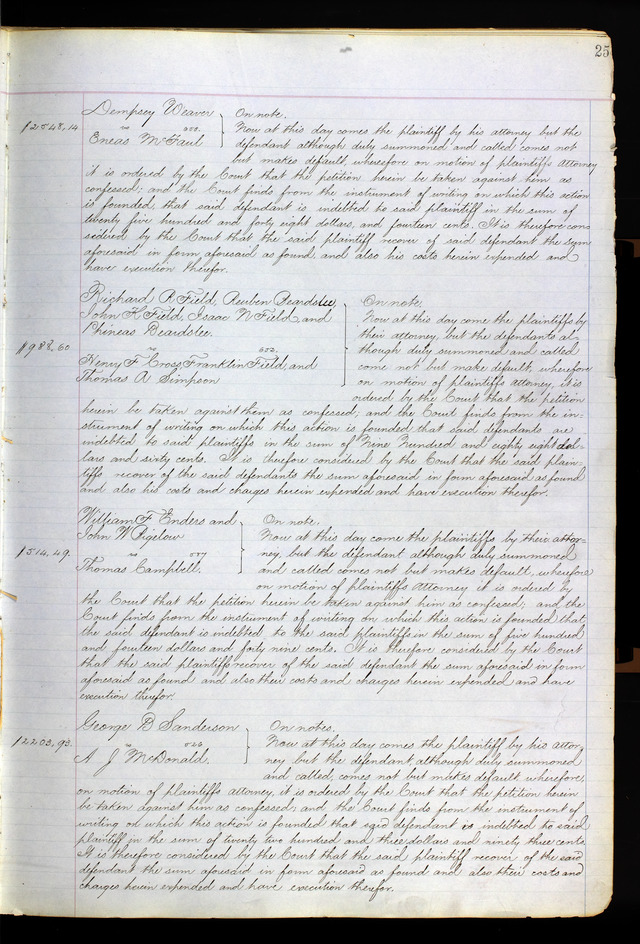 25
Dempsey Weaver On note.
$2548.14 vs Now at this day comes the plaintiff by his attorney but the
Eneas McFaul defendant although duly summoned and called comes not
but makes default, wherefore on motion of plaintiffs attorney
it is ordered by the Court that the petition herein be taken against him as
confessed; and the Court finds from the instrument of writing on which this action
is founded, that said defendant is indebted to said plaintiff in the sum of
twenty five hundred and forty eight dollars, and fourteen cents. It is therefore con
sidered by the Court that the said plaintiff recover of said defendant the sum
aforesaid in form aforesaid as found, and also his costs herein expended and
have execution therefor.
Richard R Field, Reuben Beardslee On note.
John H Field, Isaac N Field, and Now at this day come the plaintiffs by
Phineas Beardslee. their attorney, but the defendants al-
$988.60 vs though duly summoned and called
Henry F Cross, Franklin Field, and come not but make default, wherefore
Thomas A Simpson on motion of plaintiffs attorney, it is
ordered by the Court that the petition
herein be taken against them as confessed; and the Court finds from the in-
strument of writing on which this action is founded that said defendants are
indebted to said plaintiffs in the sum of Nine Hundred and eighty eight dol-
lars and sixty cents. It is therefore considered by the Court that the said plain-
tiffs recover of the said defendants the sum aforesaid in form aforesaid as found
and also his costs and charges herein expended and have execution therefor.
William F Enders and On note.
John W Bigelow Now at this day come the plaintiffs by their attor-
$514.49. vs ney, but the defendant although duly summoned
Thomas Campbell. and called comes not but makes default, wherefore
on motion of plaintiffs attorney it is ordered by
the Court that the petition herein be taken against him as confessed; and the
Court finds from the instrument of writing on which this action is founded that
the said defendant is indebted to the said plaintiffs in the sum of five hundred
and fourteen dollars and forty nine cents. It is therefore considered by the Court
that the said plaintiffs recover of the said defendant the sum aforesaid in form
aforesaid as found and also their costs and charges herein expended and have
execution therefor.
George D Sanderson On notes.
$2203.93. vs Now at this day comes the plaintiff by his attor
A J McDonald. ney but the defendant, although duly summoned
and called, comes not but makes default wherefore
on motion of plaintiffs attorney, it is ordered by the Court that the petition herein
be taken against him as confessed, and the Court finds from the instrument of
writing on which this action is founded that said defendant is indebted to said
plaintiff in the sum of twenty two hundred and three dollars and ninety three cents
It is therefore considered by the Court that the said plaintiff recover of the said
defendant the sum aforesaid in form aforesaid as found and also their costs and
charges herein expended and have execution therefor.